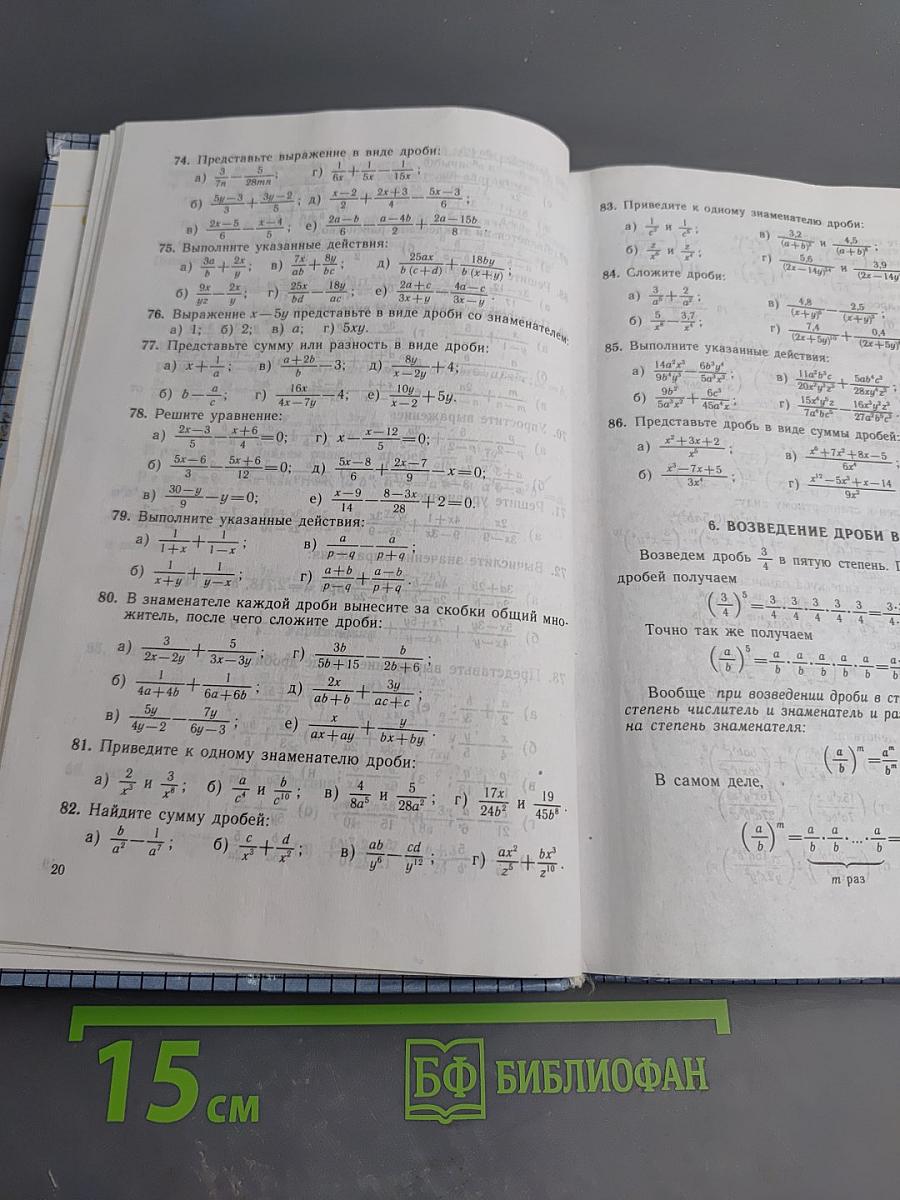 74. Представьте выражение в виде дроби:
а) 3/7n − 5/28mn; г) 1/6x + 1/5x − 1/15x;
б) 5y−3/3 + 3y−2/5; д) x−2/2 + 2x+3/4 − 5x−3/6;
в) 2x−5/6 − x−4/5; е) 2a−b/6 − a−4b/2 + 2a−15b/8.
75. Выполните указанные действия:
а) 3a/b + 2x/y; в) 7x/ab + 8y/bc; д) 25ax/b(c+d) + 18by/b(x+y);
б) 9x/yz − 2x/y; г) 25x/bd − 18y/ac; е) 2a+c/3x+y − 4a−c/3x−y.
76. Выражение x−5y представьте в виде дроби со знаменателем:
а) 1; б) 2; в) a; г) 5xy.
77. Представьте сумму или разность в виде дроби:
а) x+1/a; в) a+2b/b −3; д) 8y/x−2y +4;
б) b−a/c; г) 16x/4x−7y −4; е) 10y/x−2 +5y.
78. Решите уравнение:
а) 2x−3/5 − x+6/4 =0; г) x− x−12/5 =0;
б) 5x−6/3 − 5x+6/12 =0; д) 5x−8/6 + 2x−7/9 −x=0;
в) 30−y/9 −y=0; е) x−9/14 − 8−3x/28 +2=0.
79. Выполните указанные действия:
а) 1/1+x + 1/1−x; в) a/p−q − a/p+q;
б) 1/x+y + 1/y−x; г) a+b/p−q + a−b/p+q.
80. В знаменателе каждой дроби вынесите за скобки общий мно-
житель, после чего сложите дроби:
а) 3/2x−2y + 5/3x−3y; г) 3b/5b+15 − b/2b+6;
б) 1/4a+4b + 1/6a+6b; д) 2x/ab+b + 3y/ac+c;
в) 5y/4y−2 − 7y/6y−3; е) x/ax+ay + y/bx+by.
81. Приведите к одному знаменателю дроби:
а) 2/x³ и 3/x⁸; б) a/c⁴ и b/c¹⁰; в) 4/8a⁵ и 5/28a²; г) 17x/24b² и 19/45b⁸.
82. Найдите сумму дробей:
а) b/a² − 1/a⁷; б) c/x³ + d/x²; в) ab/y⁶ − cd/y¹²; г) ax²/z⁵ + bx³/z¹⁰.
20
83. Приведите к одному знаменателю дроби:
а) и в) 3,2 и 4,5
б) и г) 5,6 и 3,9
84. Сложите дроби:
а) 3/a⁵ + 2/a²; в) 4,8 − 2,5
б) 5 − 3,7; г) 7,4 + 0,4
85. Выполните указанные действия:
а) в)
б) г)
86. Представьте дробь в виде суммы дробей:
а) x²+3x+2/x⁵; в)
б) x³−7x+5/3x⁴; г) x¹²−5x³+x−14/9x³
6. ВОЗВЕДЕНИЕ ДРОБИ В
Возведем дробь 3/4 в пятую степень.
дробей получаем
(3/4)⁵ = 3/4·3/4·3/4·3/4·3/4 =
Точно так же получаем
(a/b)⁵ = a/b·a/b·a/b·a/b·a/b =
Вообще при возведении дроби в ст
степень числитель и знаменатель и ра
на степень знаменателя:
(a/b)ᵐ = aᵐ/bᵐ
В самом деле,
(a/b)ᵐ = a/b·a/b·...·a/b =
m раз
15 см
БФ БИБЛИОФАН